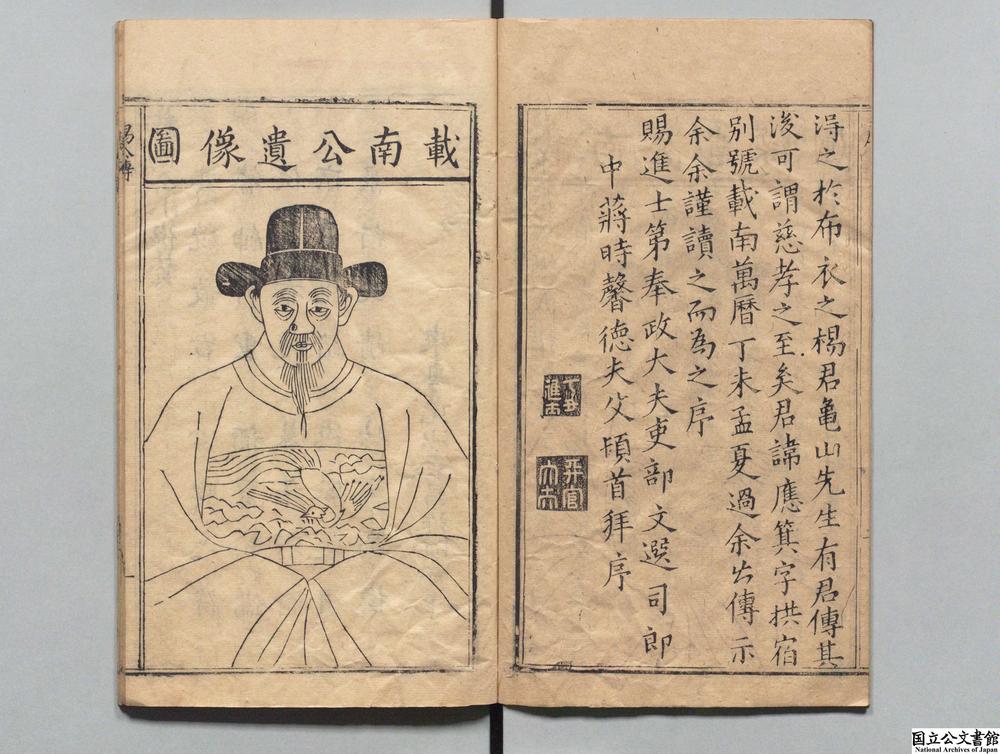 淂之於布衣之楊君龜山先生有君傳其
後可謂慈孝之至矣君諱應箕字拱宿
別號載南萬曆丁未孟夏過余出傳示
余余謹讀之而為之序
賜進士第奉政大夫吏部文選司郎
中蔣時馨德夫父頓首拜序
載南公遺像圖
国立公文書館
National Archives of Japan